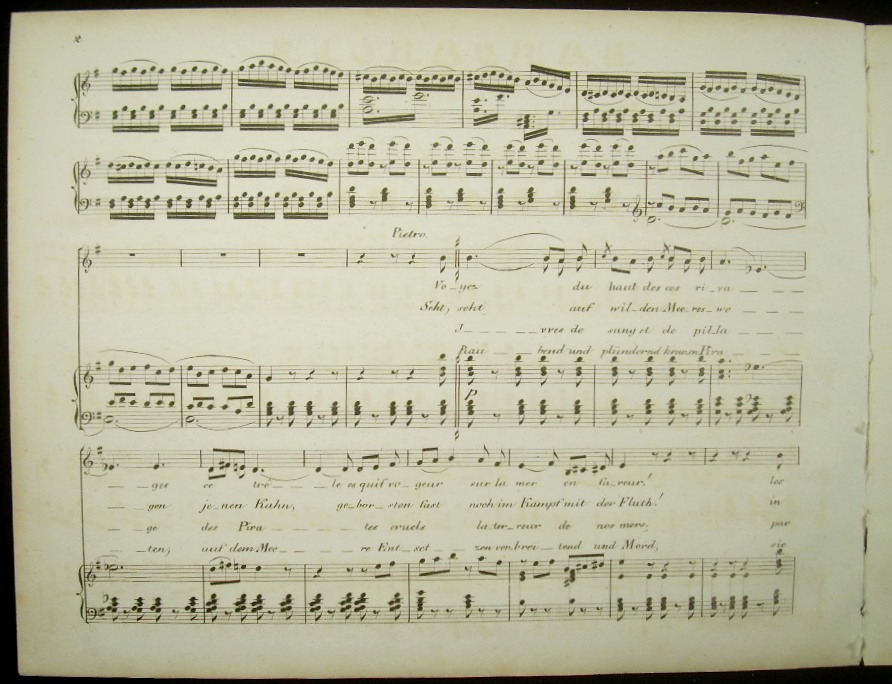 2
Pietro.
Vo-yez du haut des ces ri-va
Seht, seht auf wil-den Mee-res-wo
I-vres de sang et de pil-la
Rau-bend und plündernd kreuzen Pira
p
ges ce frê-le es quif vo-geur sur la mer en fu-reur! les
gen je-nen Kahn, ge-bor-sten fast noch im Kampf mit der Fluth! in
ge des Pira-tes cruels la ter-reur de nos mers, par
ten, auf dem Mee-re Ent-set-zen ver-brei-tend und Mord, sie